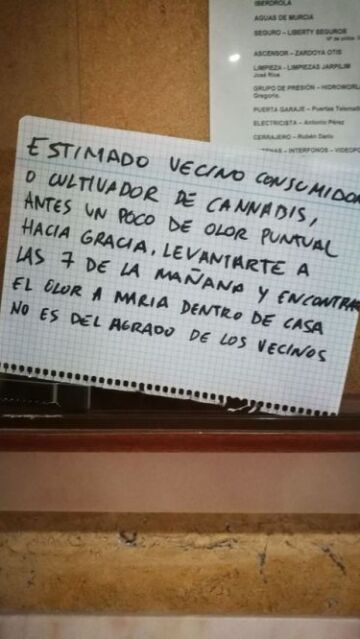 IBERDROLA
AGUAS DE MURCIA
SEGURO – LIBERTY SEGUROS
ASCENSOR – ZARDOYA OTIS
LIMPIEZA – LIMPIEZAS JARPILIM
José Ríos
GRUPO DE PRESIÓN – HIDROWORL
Gregorio.
PUERTA GARAJE – Puertas
ELECTRICISTA – Antonio Pérez
CERRAJERO – Rubén Darío
INTERFONOS – VIDEOPO
ESTIMADO VECINO CONSUMIDOR
O CULTIVADOR DE CANNABIS,
ANTES UN POCO DE OLOR PUNTUAL
HACIA GRACIA, LEVANTARTE A
LAS 7 DE LA MAÑANA Y ENCONTRAR
EL OLOR A MARIA DENTRO DE CASA
NO ES DEL AGRADO DE LOS VECINOS